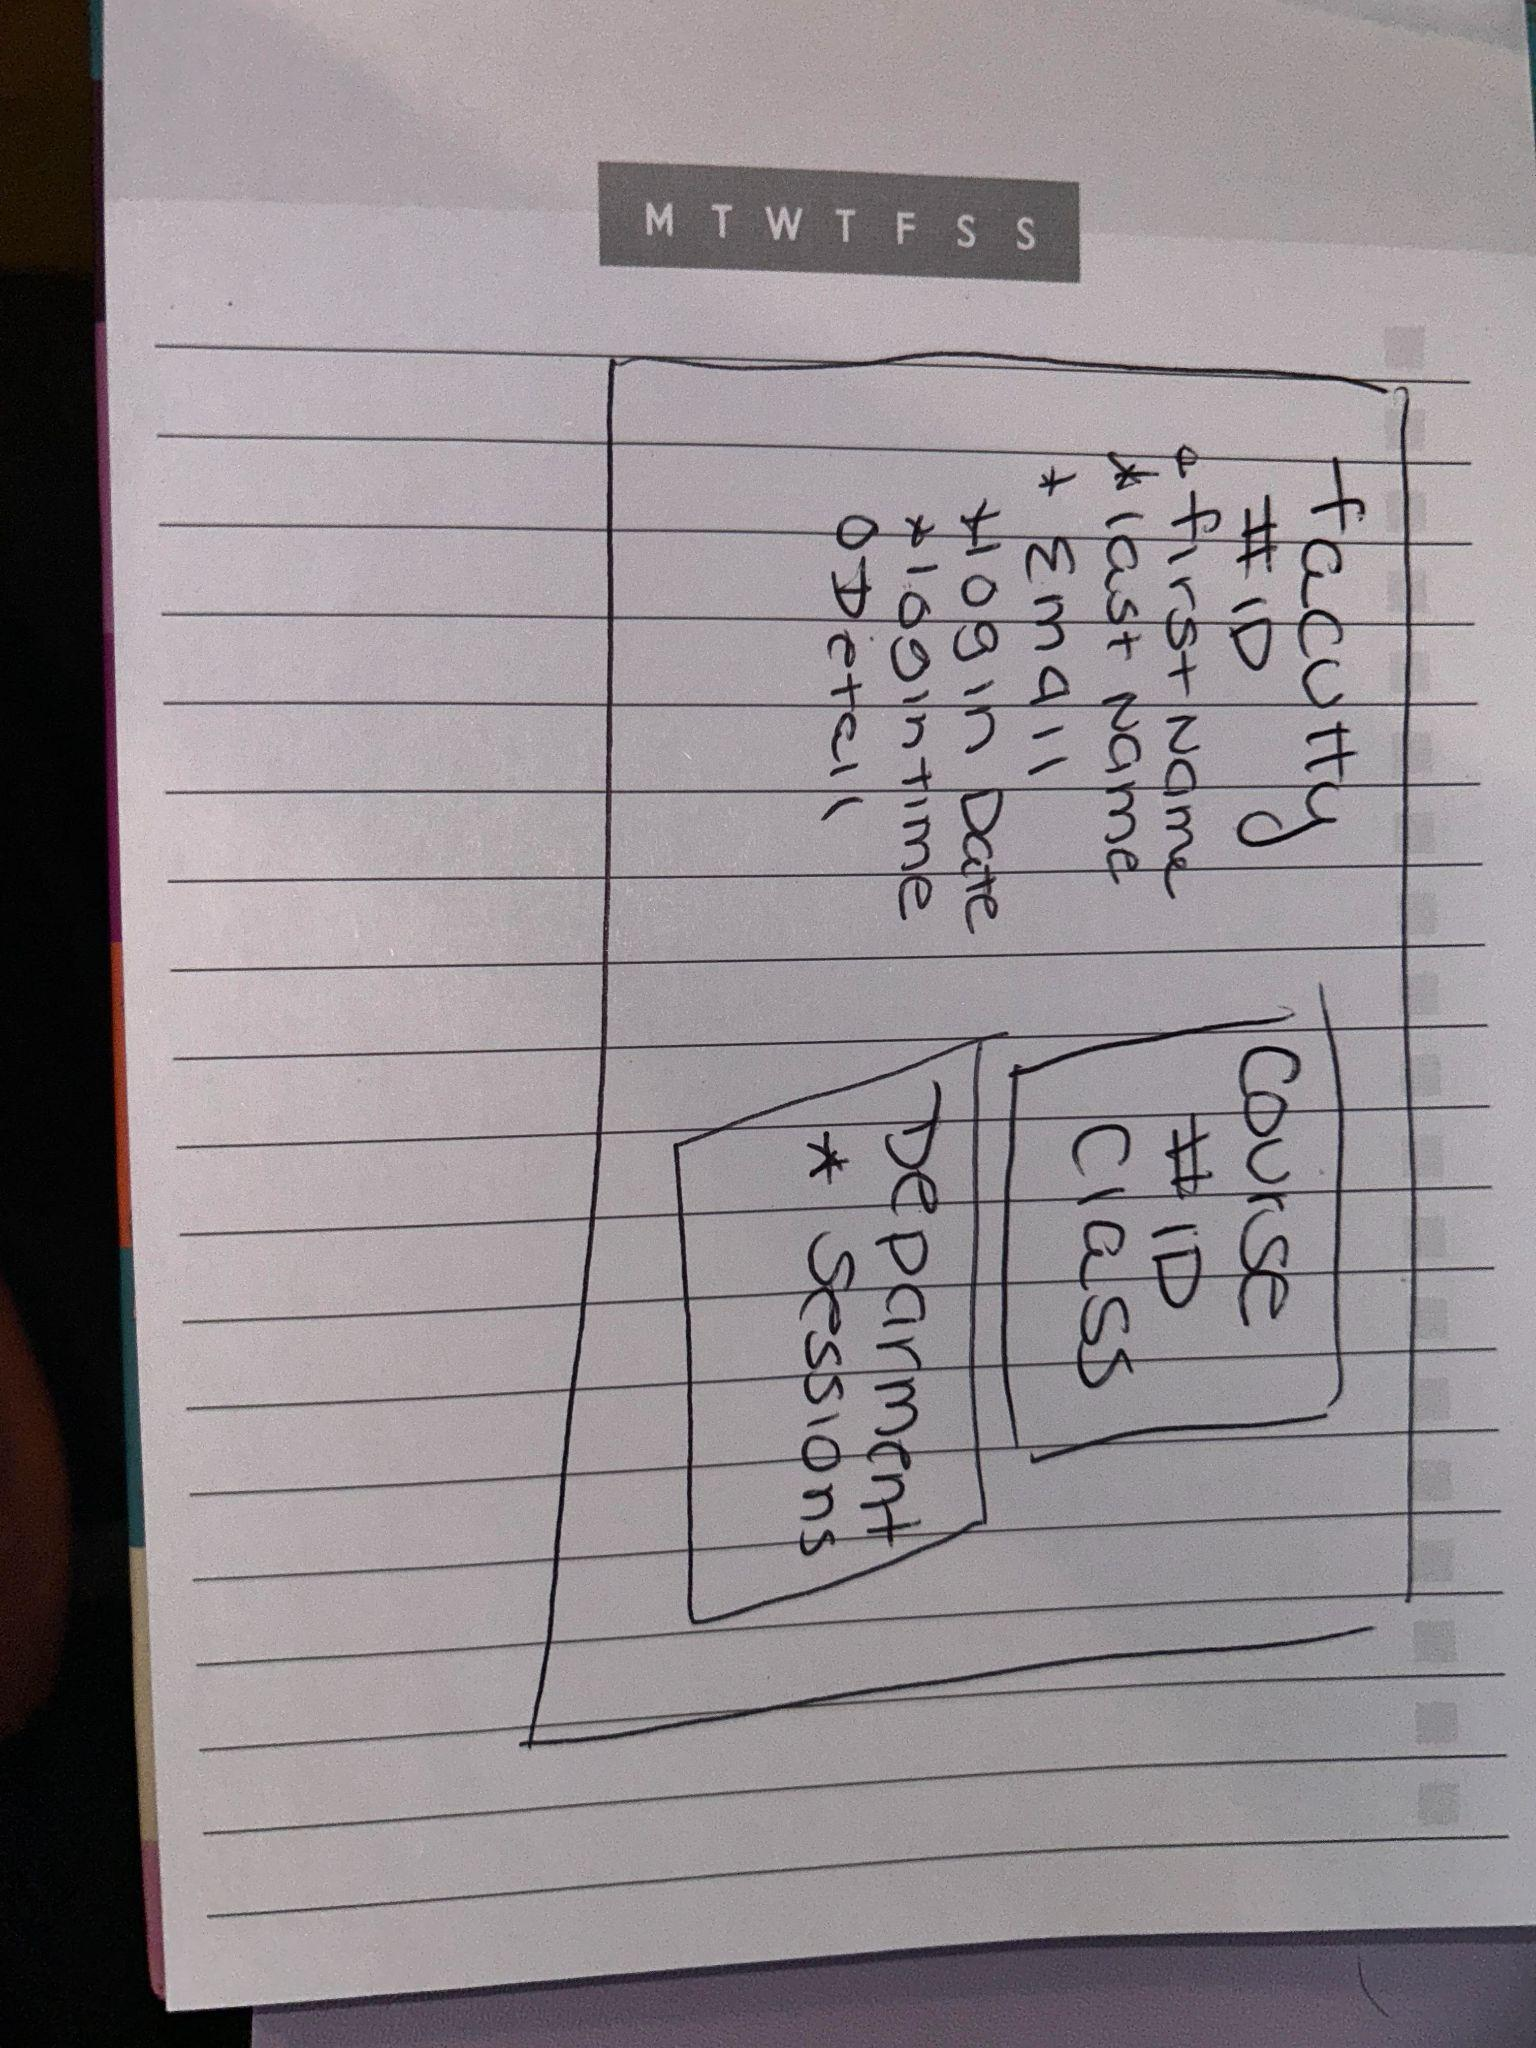 M T W T F S S
faculty
# ID
o first name
* last name
* Email
* login Date
* login time
o Detail
Course
# ID
Class
Deparment
* Sessions